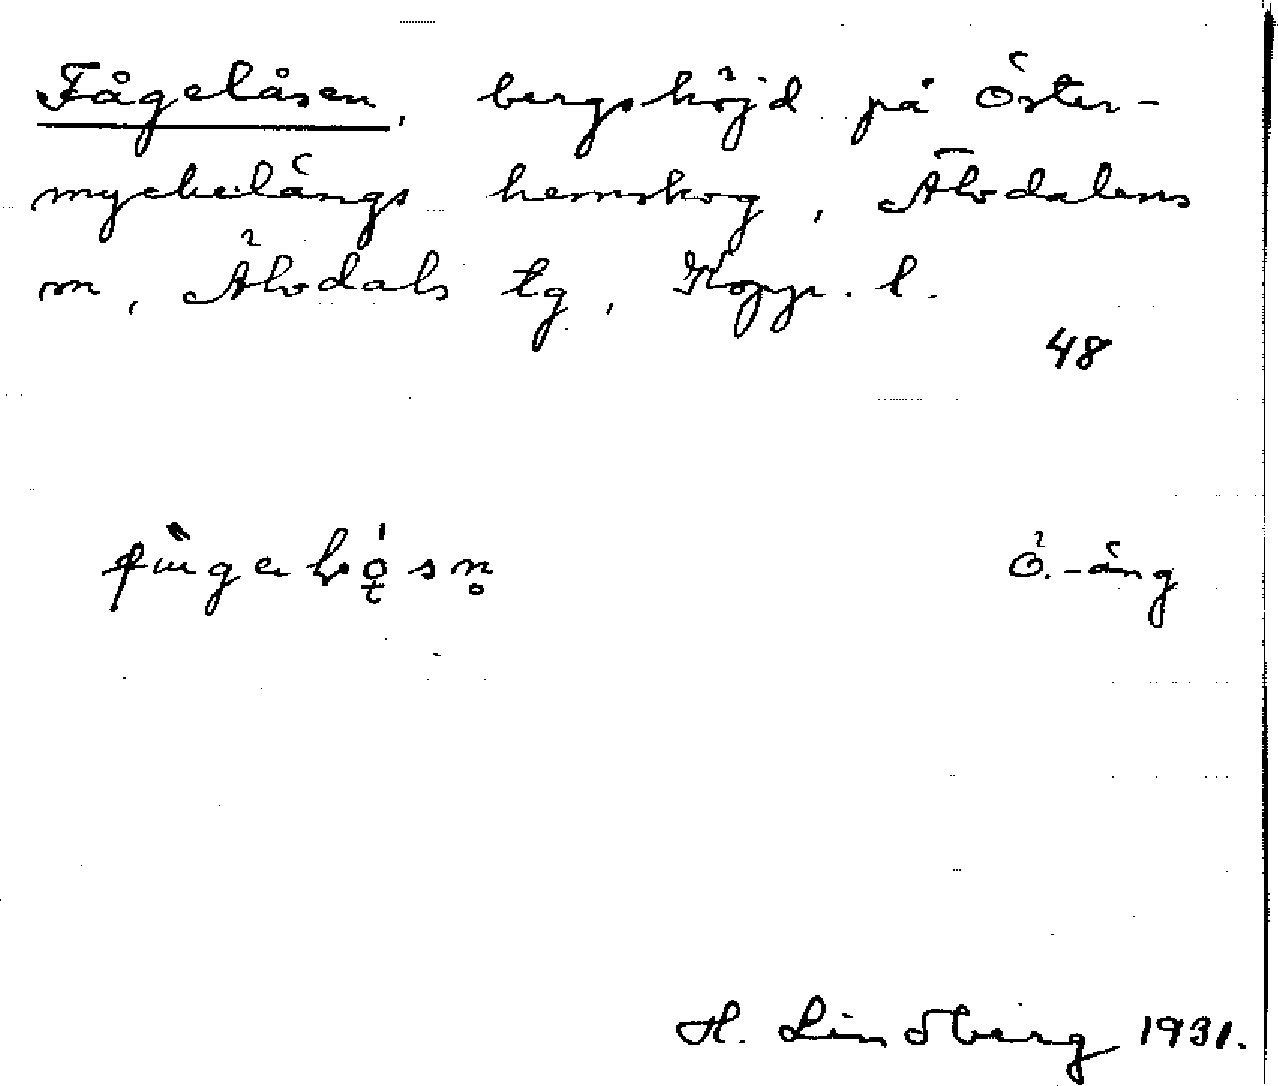 Fågelåsen, bergshöjd på Öster-
myckelängs hemskog, Älvdalens
sn, Älvdals tg, Kopp. l.
48
Ö.-äng
H. Lindberg 1931.